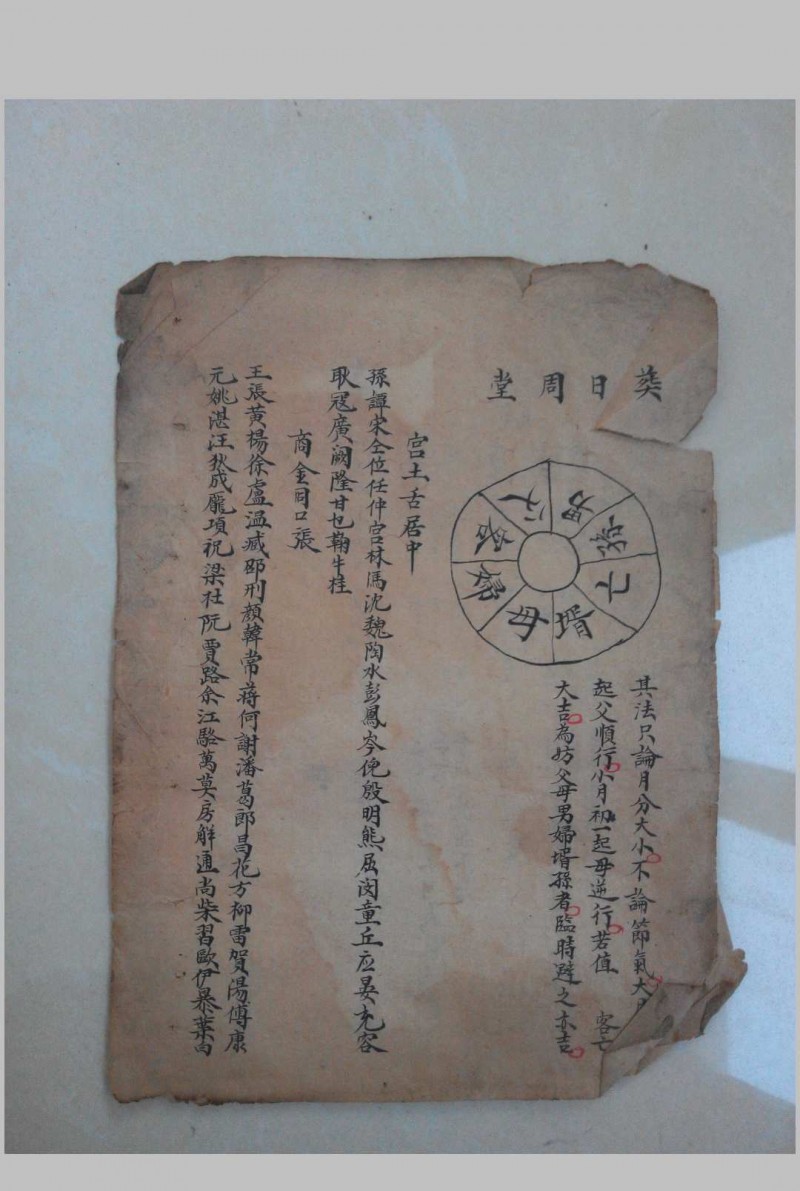 葬日周堂
父
男
孫
亡
壻
母
婦
客
其法只論月分大小不論節氣大月
起父順行小月初一起母逆行若值 客亡
大吉為妨父母男婦壻孫者臨時避之亦吉
宫土舌居中
孫譚宋仝位任仲宫林馮沈魏陶水彭鳳岑伲殷明熊屈闵童丘应晏充容
耿冦廣阙隆甘乜鞠牛桂
商金同口張
王張黄楊徐盧温臧邵刑顔韓常蒋何謝潘葛郎昌花方柳雷賀湯傅康
元姚湛汪狄成龐項祝梁杜阮賈路余江駱萬莫房解通尚柴習歐伊暴葉向